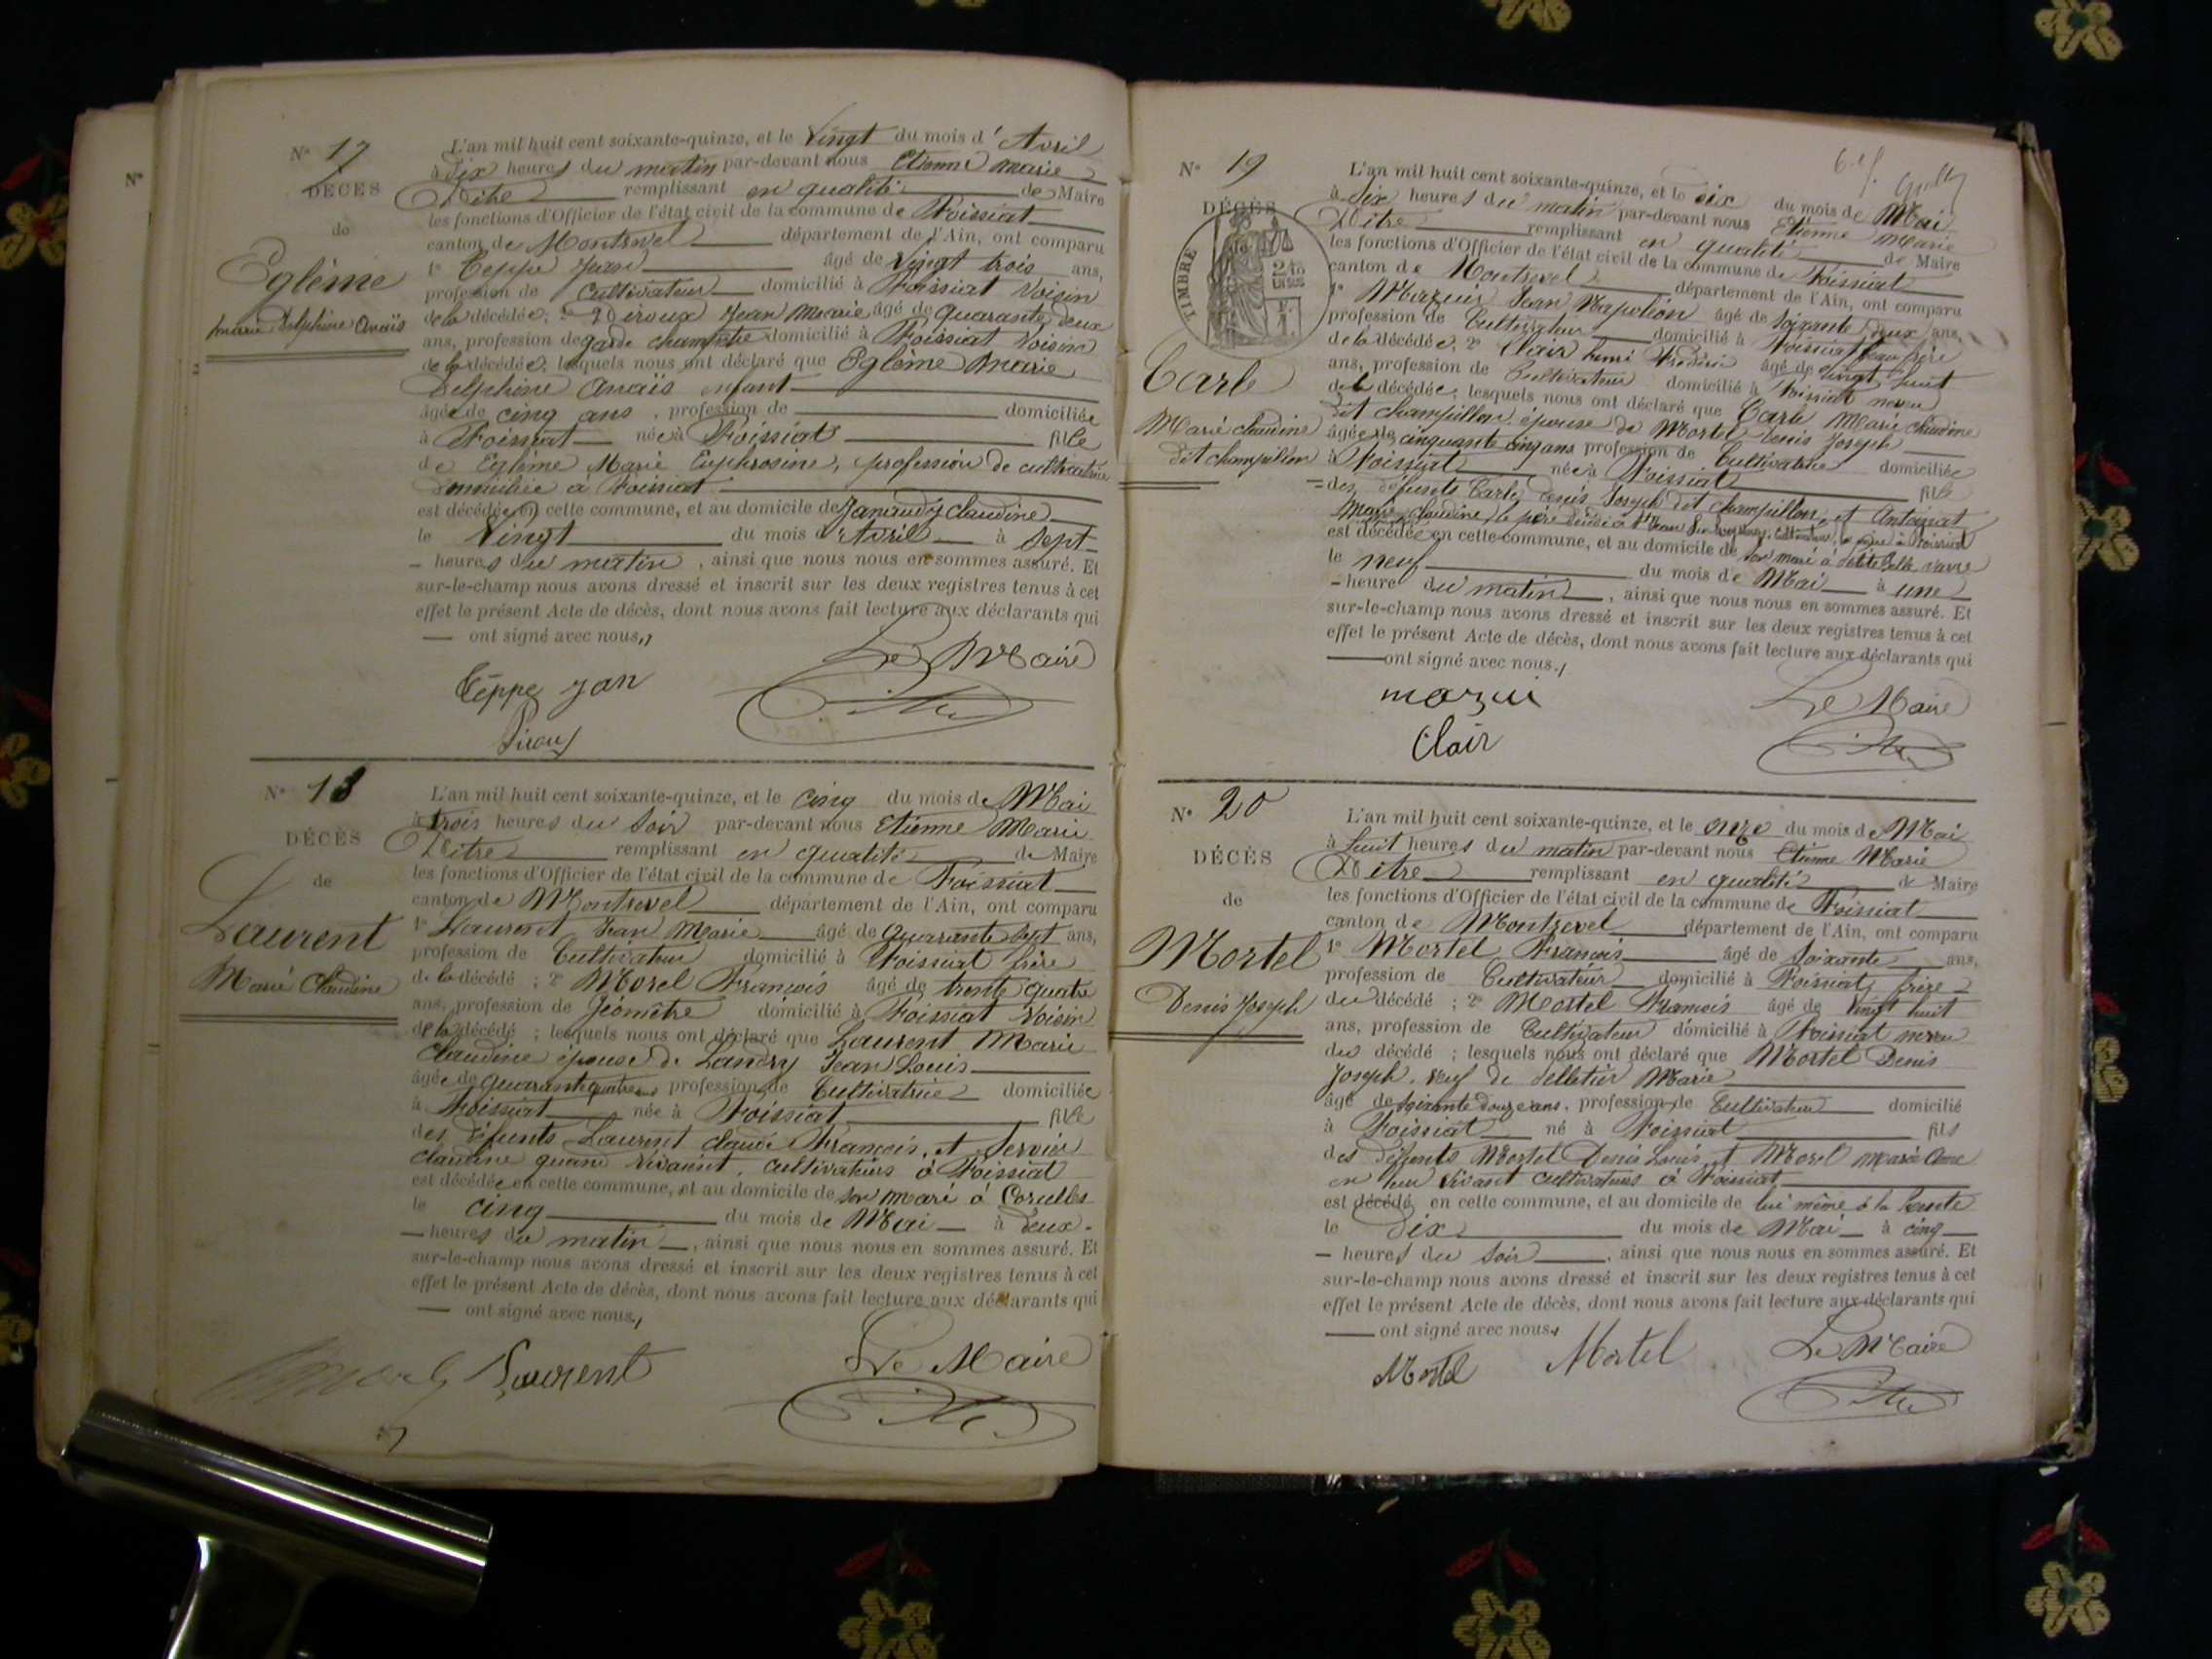 N° 17
DÉCÈS
de
Eglème
marie Delphine Anaïs
L'an mil huit cent soixante-quinze, et le Vingt du mois d'Avril
à Dix heures du matin par-devant nous Etienne Marie
remplissant en qualité de Maire
les fonctions d'Officier de l'état civil de la commune de Foissiat
canton de Montrevel département de l'Ain, ont comparu
1° Teppe âgé de Vingt trois ans,
profession de Cultivateur domicilié à Foissiat Voisin
de la décédée; 2° Jean Marie âgé de quarante deux
ans, profession de garde champêtre domicilié à Foissiat Voisin
de la décédée, lesquels nous ont déclaré que Eglème Marie
Delphine Anaïs enfant
âgée de cinq ans, profession de domiciliée
à Foissiat née à Foissiat fille
de Eglème Marie Euphrosine, profession de cultivatrice
Domiciliée à Foissiat
est décédée en cette commune, et au domicile de Janaudy Claudine
le Vingt du mois d'Avril à Sept
heures du matin, ainsi que nous nous en sommes assuré. Et
sur-le-champ nous avons dressé et inscrit sur les deux registres tenus à cet
effet le présent Acte de décès, dont nous avons fait lecture aux déclarants qui
ont signé avec nous,
Le Maire
Teppe
N° 18
DÉCÈS
de
Laurent
Marie Claudine
L'an mil huit cent soixante-quinze, et le Cinq du mois de Mai
à trois heures du Soir par-devant nous Etienne Marie
remplissant en qualité de Maire
les fonctions d'Officier de l'état civil de la commune de Foissiat
canton de Montrevel département de l'Ain, ont comparu
1° Laurent Jean Marie âgé de Quarante sept ans,
profession de Cultivateur domicilié à Foissiat frère
de la décédé ; 2° Morel François âgé de trente quatre
ans, profession de Géomètre domicilié à Foissiat Voisin
de la décédé ; lesquels nous ont déclaré que Laurent Marie
Claudine épouse de Landry Jean Louis
âgée de quarante quatre ans profession de Cultivatrice domiciliée
à Foissiat née à Foissiat fille
des défunts Laurent Claude François, et Servier
Claudine quand vivaient, cultivateurs à Foissiat
est décédée en cette commune, et au domicile de son mari à Corcelles
le cinq du mois de Mai à Deux
heures du matin, ainsi que nous nous en sommes assuré. Et
sur-le-champ nous avons dressé et inscrit sur les deux registres tenus à cet
effet le présent Acte de décès, dont nous avons fait lecture aux déclarants qui
ont signé avec nous,
Laurent Le Maire
N° 19
DÉCÈS
TIMBRE
Carle
Marie Claudine
dit champillon
L'an mil huit cent soixante-quinze, et le dix du mois de Mai
à Six heures du matin par-devant nous Etienne Marie
remplissant en qualité de Maire
les fonctions d'Officier de l'état civil de la commune de Foissiat
canton de Montrevel département de l'Ain, ont comparu
1° Mazuir Jean Napoléon âgé de Soixante deux ans,
profession de Cultivateur domicilié à Foissiat beau frère
de la décédée; 2° Clair âgé de Vingt huit
ans, profession de Cultivateur domicilié à Foissiat neveu
de la décédée; lesquels nous ont déclaré que Carle Marie Claudine
dit champillon épouse de Mortel Denis Joseph
âgée de cinquante cinq ans profession de Cultivatrice domiciliée
à Foissiat née à Foissiat fille
des défunts Carle Denis Joseph dit champillon, et Antoinat
Marie Claudine, le père décédé à
est décédée en cette commune, et au domicile de son mari à
le neuf du mois de Mai à une
heure du matin, ainsi que nous nous en sommes assuré. Et
sur-le-champ nous avons dressé et inscrit sur les deux registres tenus à cet
effet le présent Acte de décès, dont nous avons fait lecture aux déclarants qui
ont signé avec nous,
mazui Le Maire
Clair
N° 20
DÉCÈS
de
Mortel
Denis Joseph
L'an mil huit cent soixante-quinze, et le onze du mois de Mai
à huit heures du matin par-devant nous Etienne Marie
remplissant en qualité de Maire
les fonctions d'Officier de l'état civil de la commune de Foissiat
canton de Montrevel département de l'Ain, ont comparu
1° Mortel François âgé de Soixante ans,
profession de Cultivateur domicilié à Foissiat frère
du décédé ; 2° Mortel François âgé de Vingt huit
ans, profession de Cultivateur domicilié à Foissiat neveu
du décédé ; lesquels nous ont déclaré que Mortel Denis
Joseph, veuf de Pelletier Marie
âgé de soixante douze ans, profession de Cultivateur domicilié
à Foissiat né à Foissiat fils
des défunts Mortel Denis Louis et Morel Marie Anne
en leur vivant cultivateurs à Foissiat
est décédé en cette commune, et au domicile de lui même à la
le Dix du mois de Mai à cinq
heures du Soir, ainsi que nous nous en sommes assuré. Et
sur-le-champ nous avons dressé et inscrit sur les deux registres tenus à cet
effet le présent Acte de décès, dont nous avons fait lecture aux déclarants qui
ont signé avec nous,
Mortel Mortel Le Maire